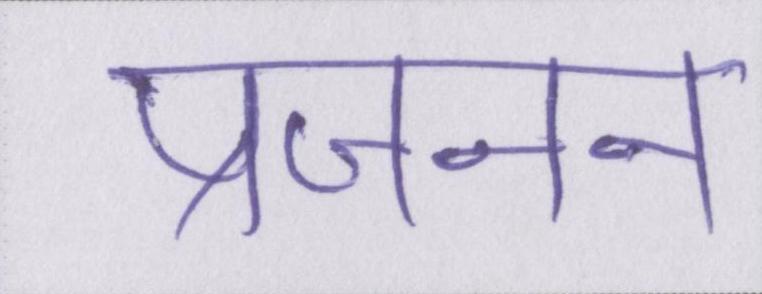 प्रजनन